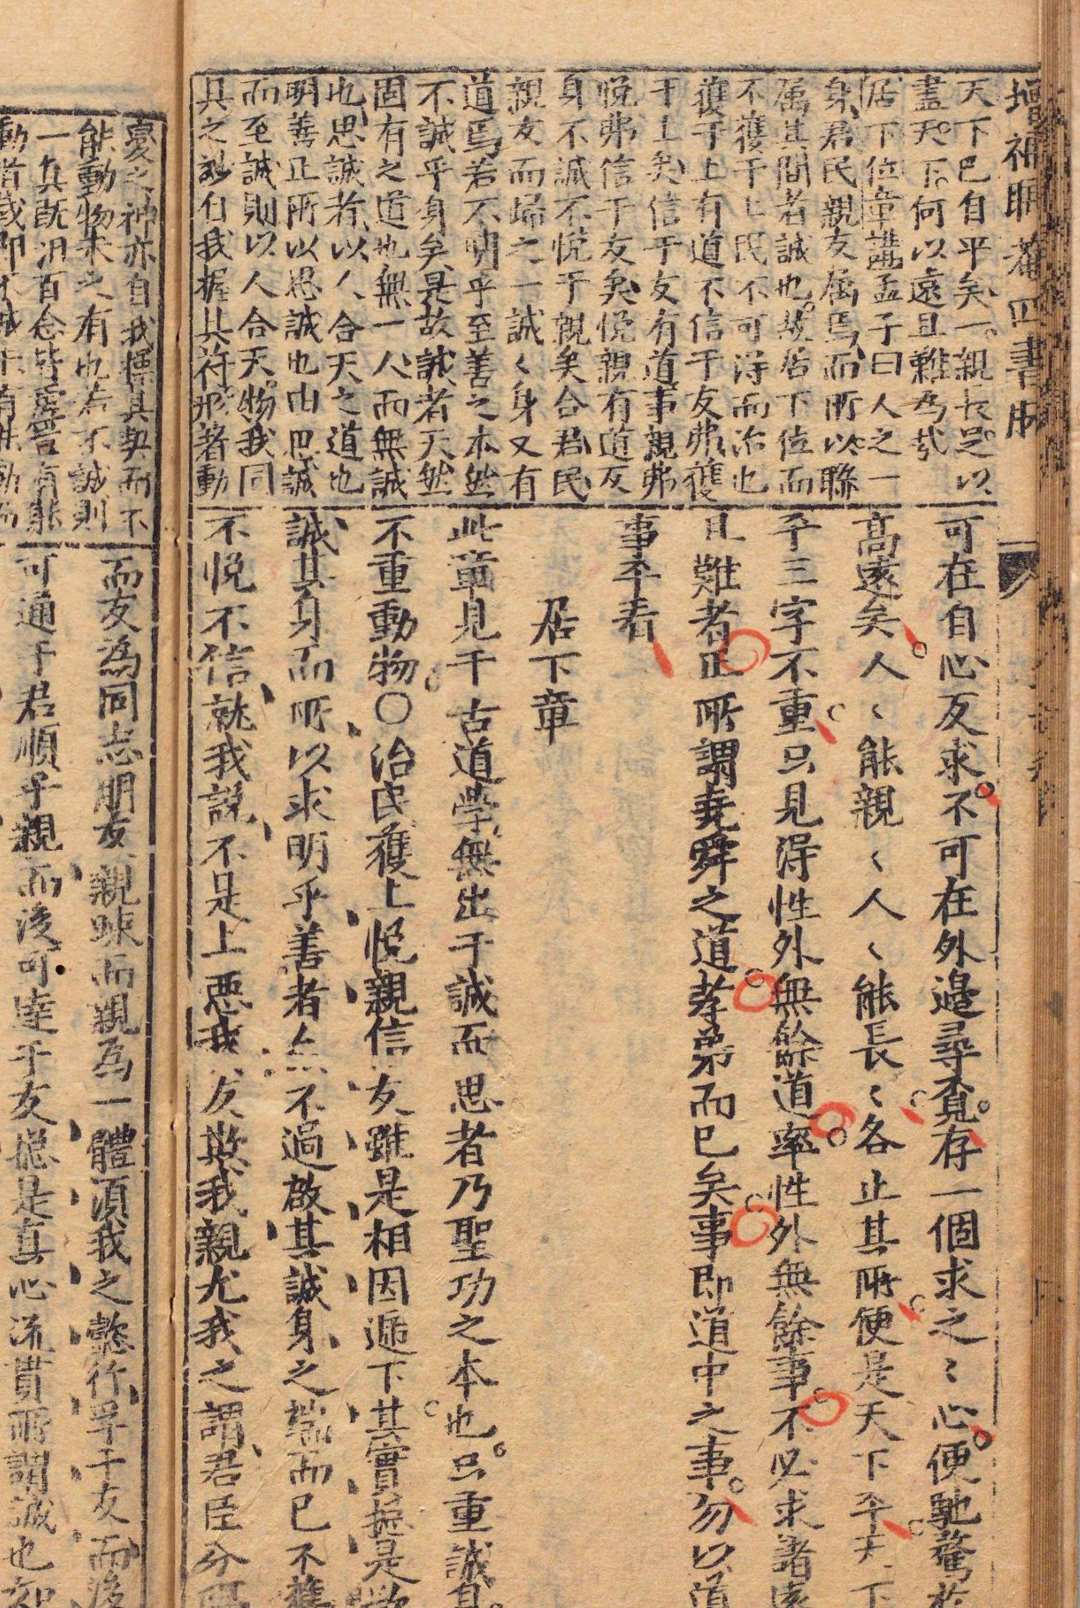 增補睏菴四書
天下已自平矣一親長足以
盡天下何以遠且難為哉
居下位章講孟子曰人之一
身君民親友屬焉而所以聯
属其間者誠也故居下位而
不獲于上民不可得而治也
獲于上有道不信于友弗獲
于上矣信于友有道事親弗
悦弗信于友矣悦親有道反
身不誠不悦于親矣合君民
親友而歸之一誠〻身又有
道焉若不明乎至善之本然
不誠乎身矣是故誠者天然
固有之道也無一人而無誠
也思誠者以人合天之道也
明善正所以思誠也由思誠
而至誠則以人合天物我同
具之妙在我握其符形著動
可在自心反求不可在外邉尋覔存一個求之〻心便馳騖於
高遠矣人〻能親〻人〻能長〻各止其所便是天下平天下
平三字不重只見得性外無餘道率性外無餘事不必求諸遠
且難者正所謂堯舜之道孝弟而已矣事即道中之事勿以道
事平看
居下章
此章見千古道學無出于誠而思者乃聖功之本也只重誠身
不重動物〇治民獲上悦親信友雖是相因遞下其實総是
誠其身而所以求明乎善者亦不過啟其誠身之端而已不獲
不悦不信就我説不是上惡我友欺我親尤我之謂君臣分
憂之神亦自我標其契而不
能動物未之有也若不誠則
一真既汨百念皆虛豈有能
而友為同志朋友親踈而親為一體須我之懿行孚于友而後
可通于君順乎親而後可達于友総是真心流貫所謂誠也如